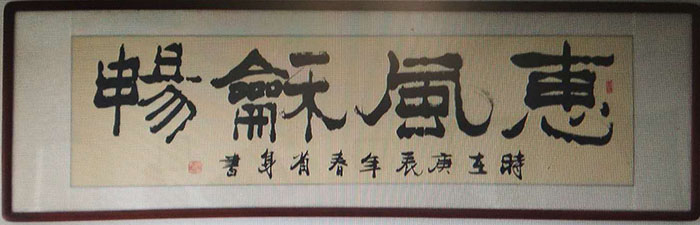 惠風龢暢
時在庚辰年春肖身書